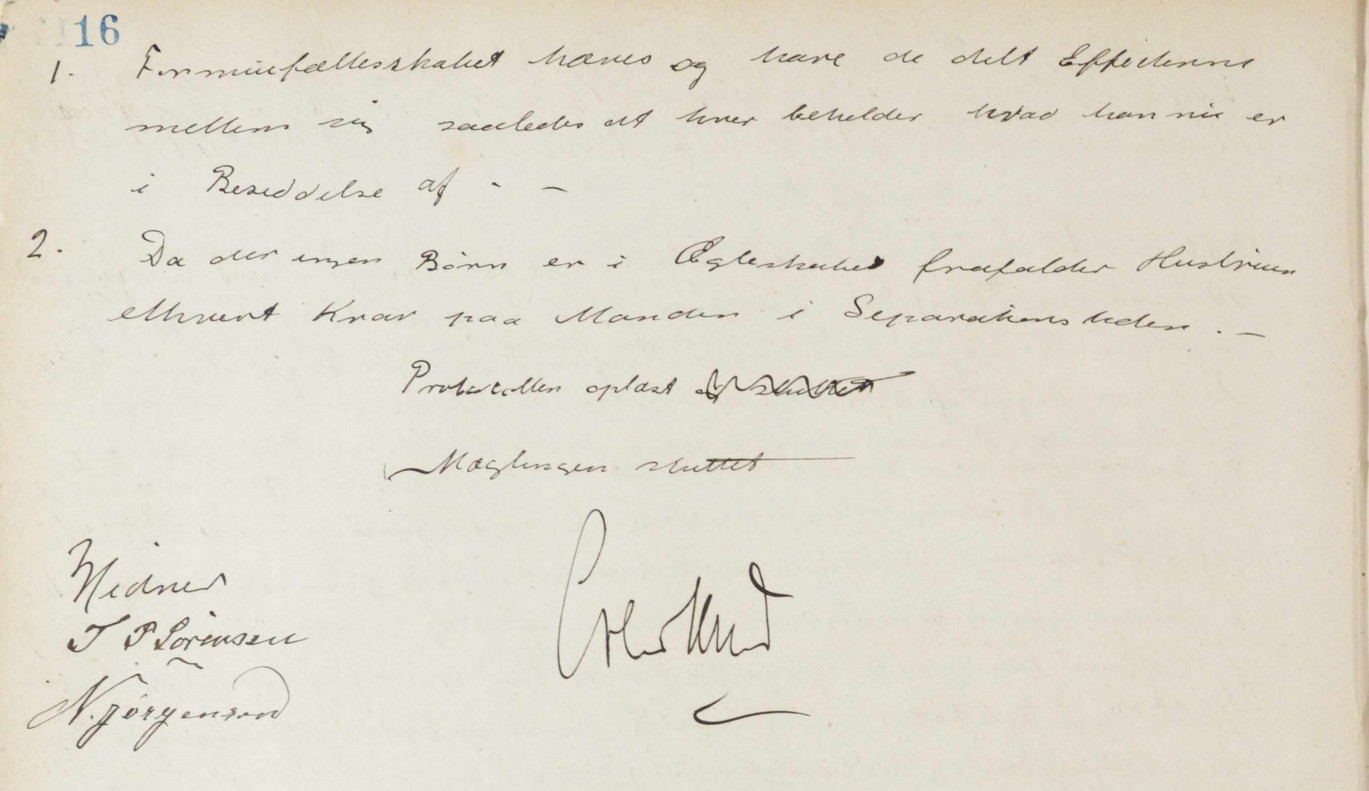 16
1. Formuefællesskabet hæves og have de delt Effecterne
mellem sig saaledes at hver beholder hvad han nu er
i Besiddelse af. —
2. Da der ingen Børn er i Ægteskabet frafalder Hustruen
ethvert Krav paa Manden i Separationstiden. —
Protocollen oplæst og sluttet
Mæglingen sluttet
Vidner
J P Sørensen
N. Jørgensen